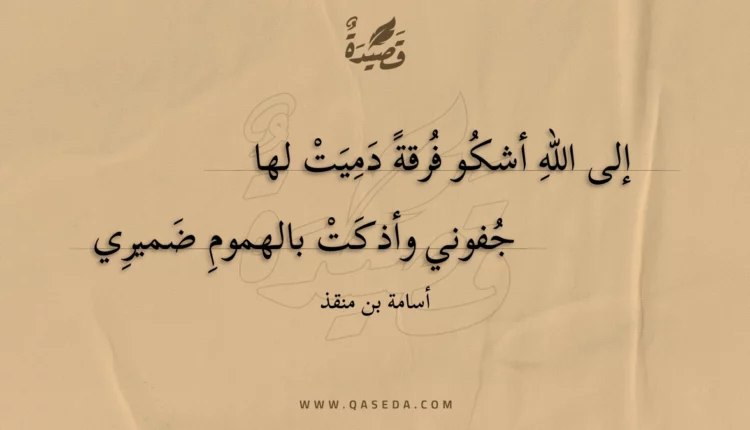 قَصِيْدَةٌ
إلى اللهِ أشكُو فُرقةً دَمِيَتْ لها
جُفوني وأذكَتْ بالهمومِ ضَميرِي
أسامة بن منقذ
WWW.QASEDA.COM